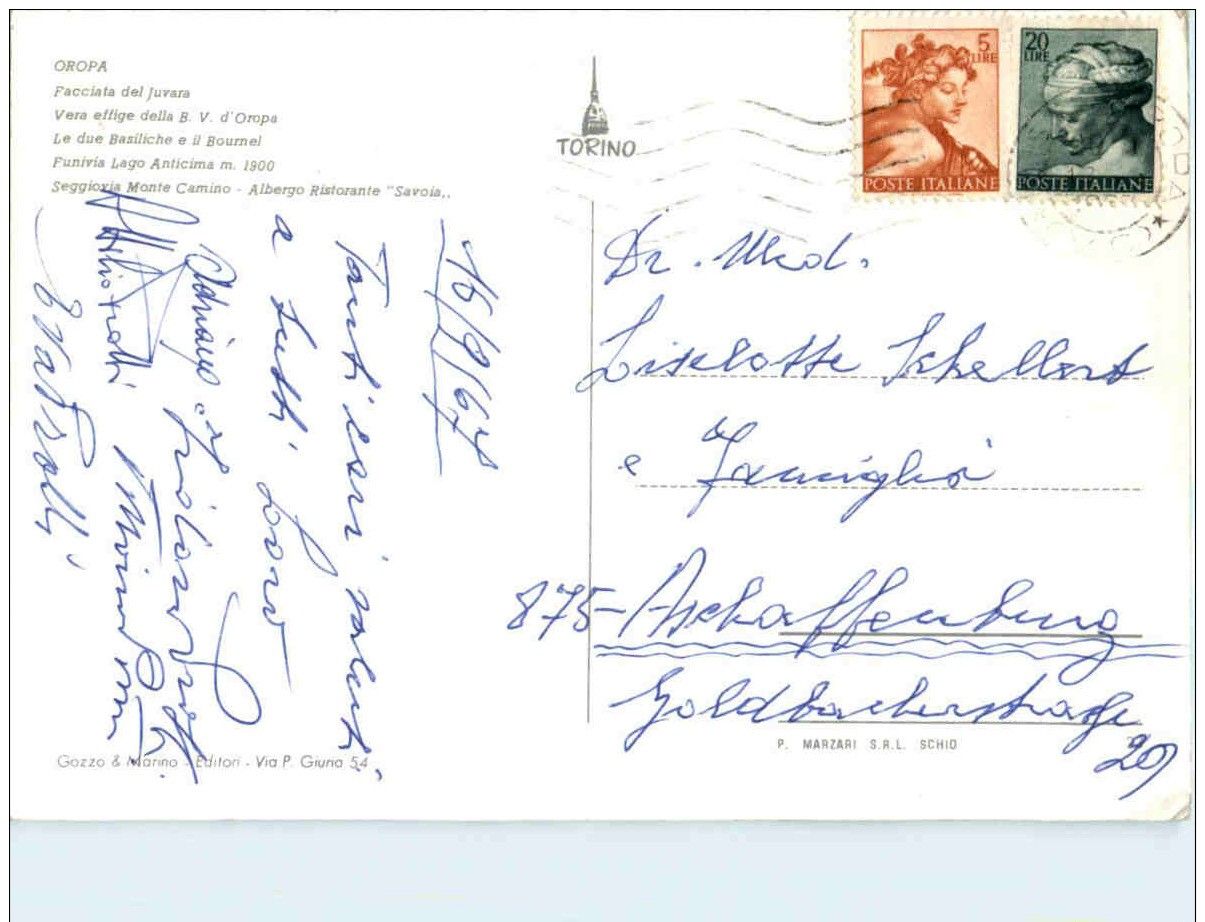 OROPA
Facciata del Juvara
Vera effige della B. V. d'Oropa
Le due Basiliche e il Bournel
Funivia Lago Anticima m. 1900
Seggiovia Monte Camino - Albergo Ristorante "Savoia,,
TORINO
5 LIRE
POSTE ITALIANE
20 LIRE
POSTE ITALIANE
16/9/67
Tanti cari saluti
a tutti Loro
Adriano
Dr. Med.
Liselotte Schellert
e Famiglia
875-Aschaffenburg
Goldbacherstraße
20
P. MARZARI S.R.L. SCHIO
Gozzo & Marino - Editori - Via P. Giuria 54